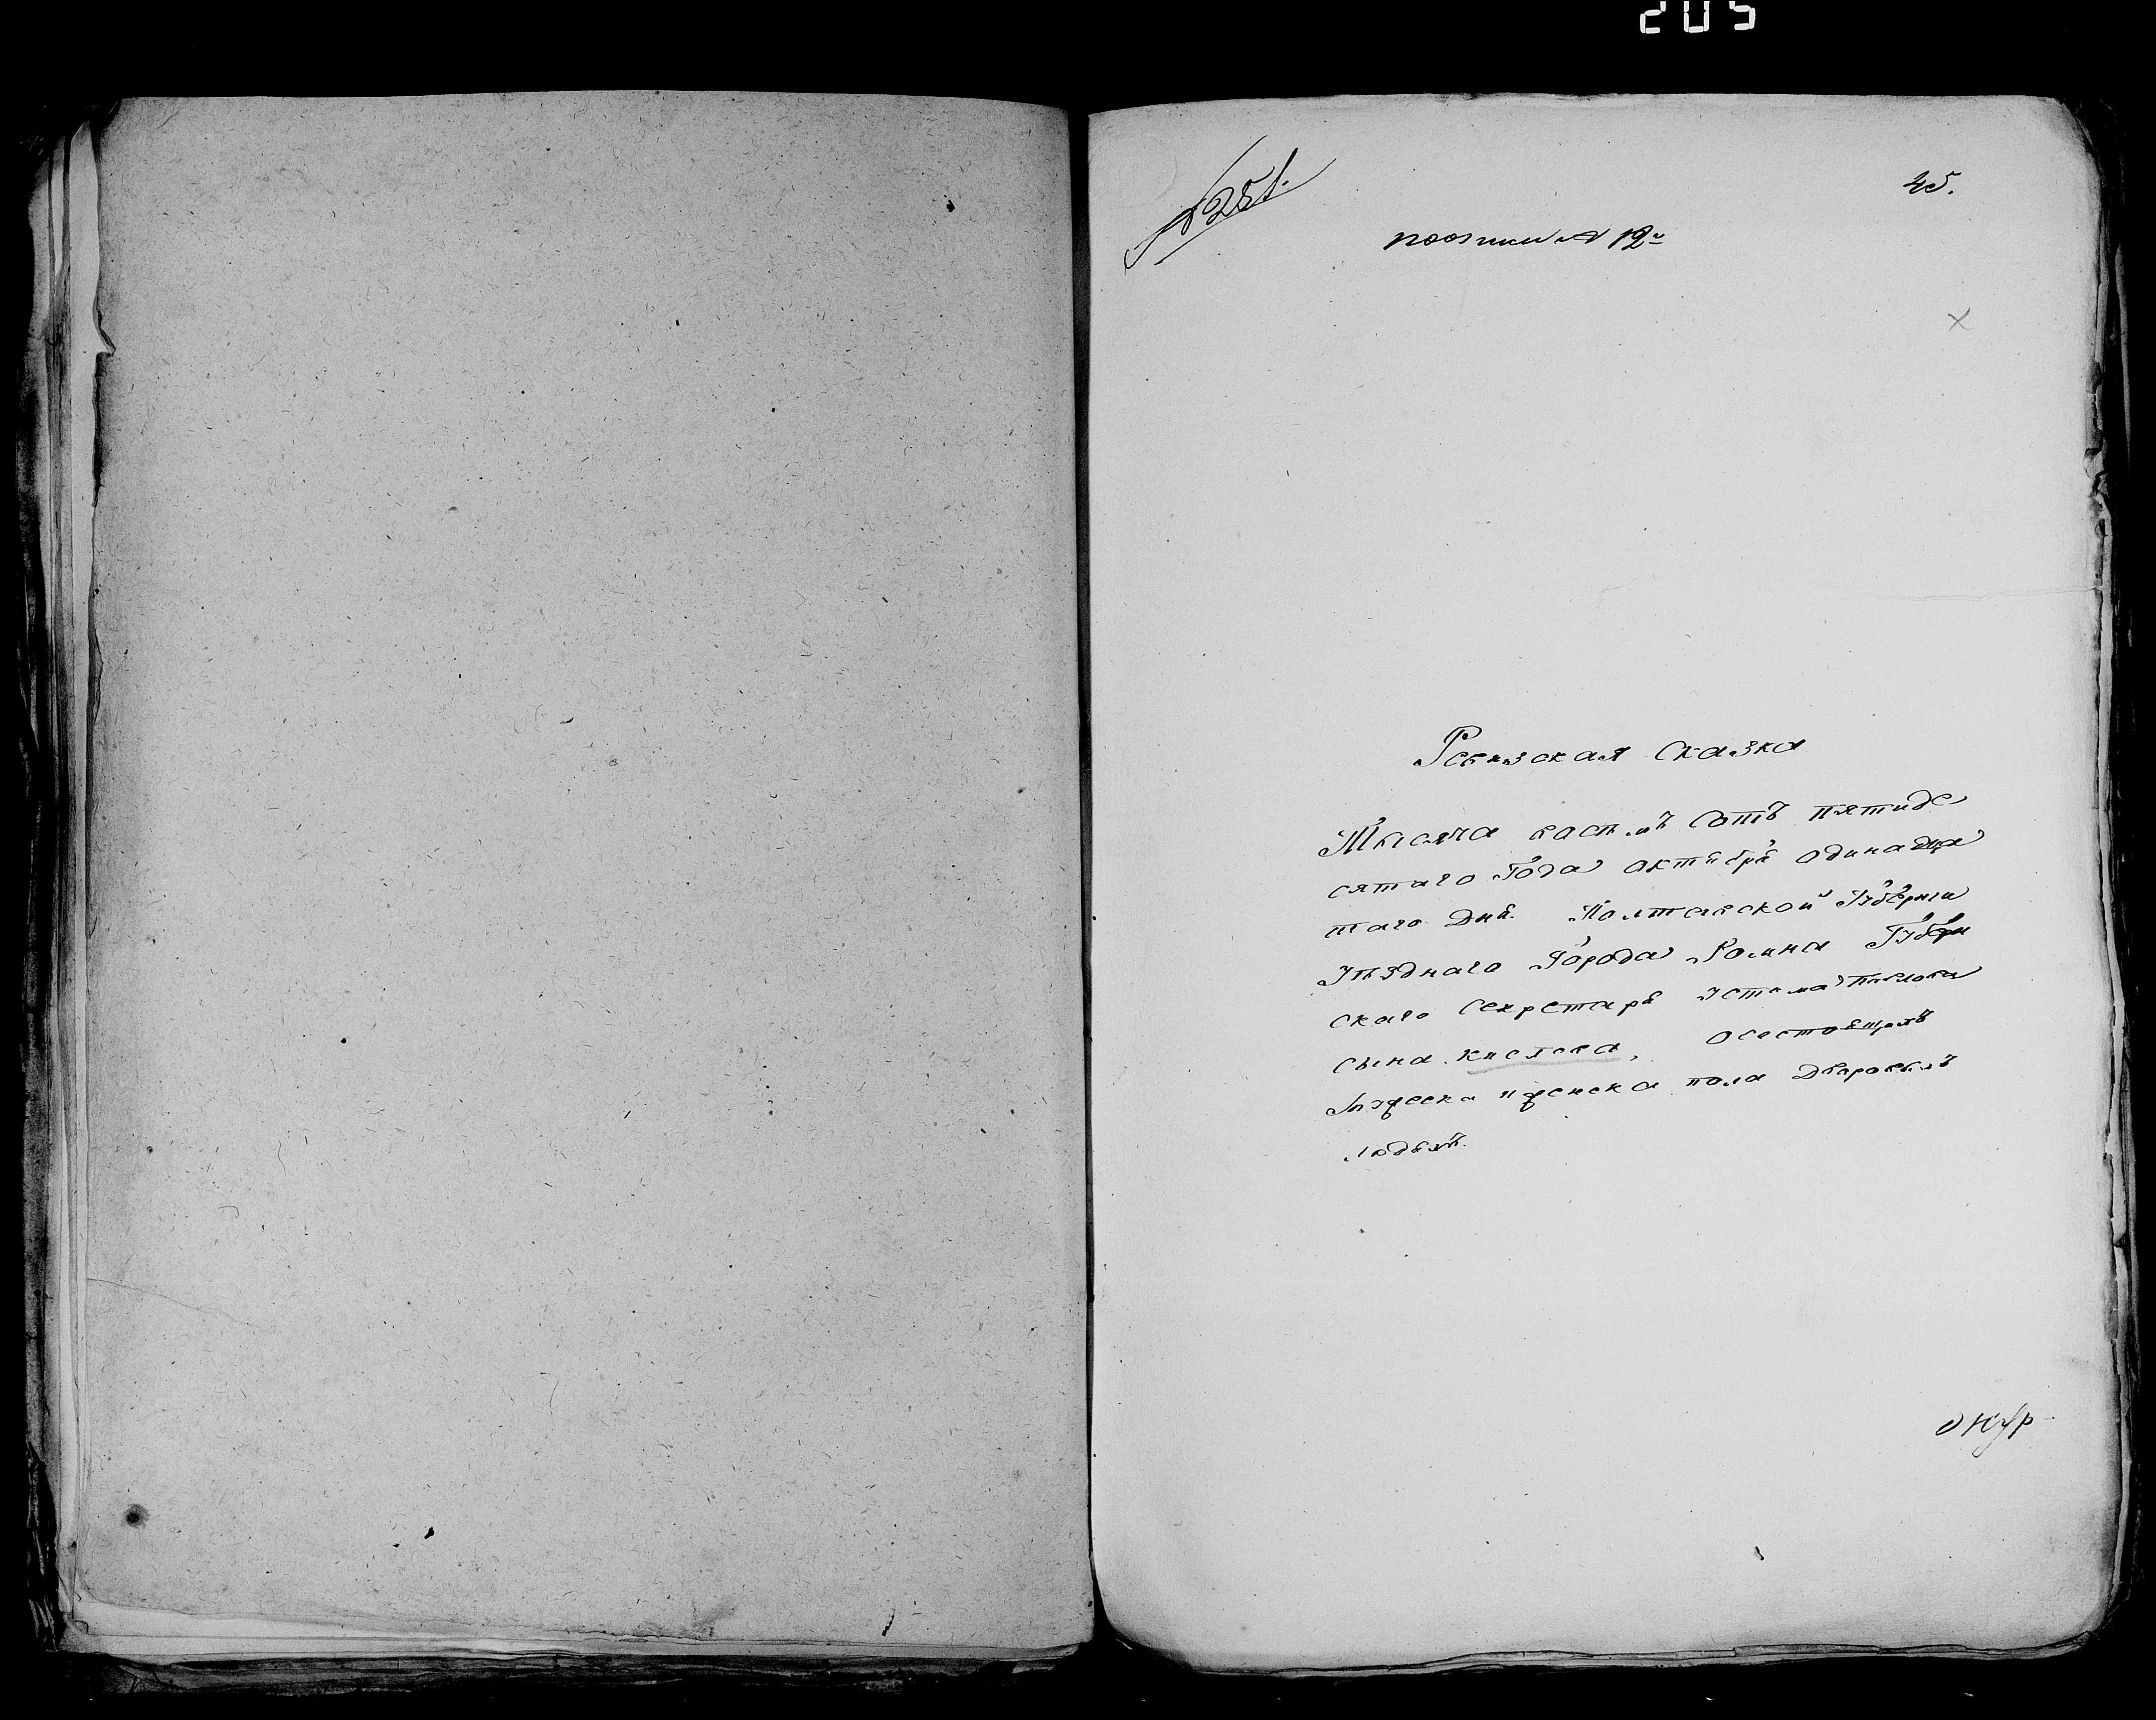 205
№ 251.
45.
№ 12й
Ревизская Сказка
Тысяча восемъ Сотъ пятиде
сятаго Года октября одинадца
таго дня. Полтавской Губернiи
Уѣзднаго Города Ромна Губерн
скаго Секретаря Устима Павлова
сына Киселева, осостоящихъ
Мужеска иженска пола Дворовыхъ
людяхъ.